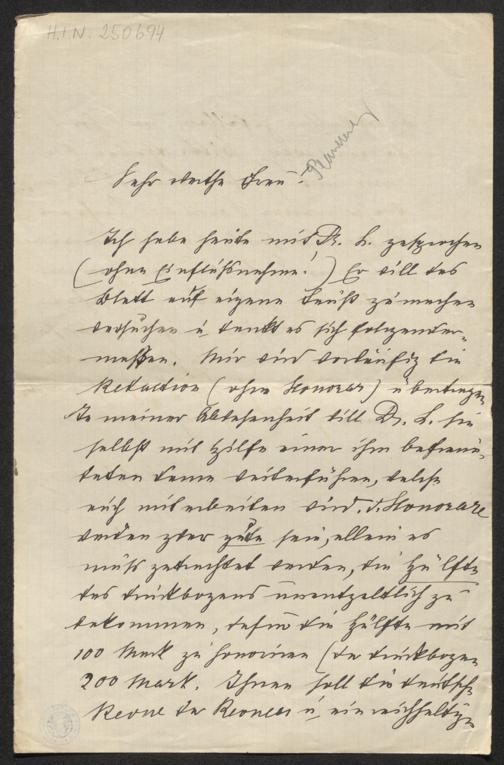 H.I.N. 250694
Sehr werthe Frau!
Ich habe heute mit Dr. L. gesprochen
(ohne Einflußnahme!) Er will das
Blatt auf eigene Faust zu machen
versuchen u. denkt es sich folgender-
maßen. Mir wird vorläufig die
Redaction (ohne Honorar) übertragen
In meiner Abwesenheit will Dr. L. sie
selbst mit Hilfe einer ihm befreun-
deten Dame weiterführen, welche
auch mitarbeiten wird. D. Honorare
werden zwar gute sein, allein es
muß getrachtet werden, die Hälfte
des Druckbogens unentgeltlich zu
bekommen, dafür die Hälfte mit
100 Mark zu honoriren (der Druckbogen
200 Mark. Ihnen soll die deutsche
Revue der Revuen u. ein reichhaltiger